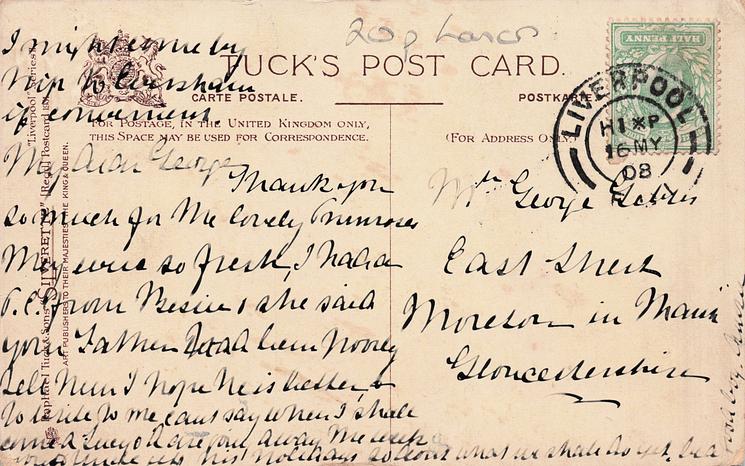 I might come by
Ship to
if convenient
20p
TUCK'S POST CARD.
CARTE POSTALE.
POSTKARTE
FOR POSTAGE, IN THE UNITED KINGDOM ONLY,
THIS SPACE MAY BE USED FOR CORRESPONDENCE.
(FOR ADDRESS ONLY.)
HALF PENNY
LIVERPOOL
16 MY
08
"Liverpool" Series
Raphael Tuck & Sons' "GILDERETTE" (Regd) Postcard
ART PUBLISHERS TO THEIR MAJESTIES THE KING & QUEEN.
My dear George
Thank you
so much for the lovely Primroses
they were so fresh, I had a
P.C. from Bessie & she said
your Father had been Poorly
tell him I hope he is better &
to write to me cant say when I shall
come
his Holidays so dont what we shall do yet
Mr George
East Street
Moreton in Marsh
Gloucestershire